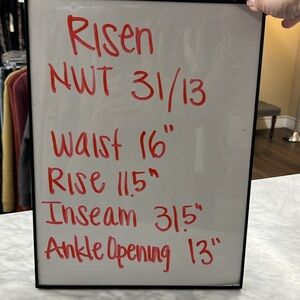 Risen
NWT 31/13
Waist 16"
Rise 11.5"
Inseam 31.5"
Ankle Opening 13"